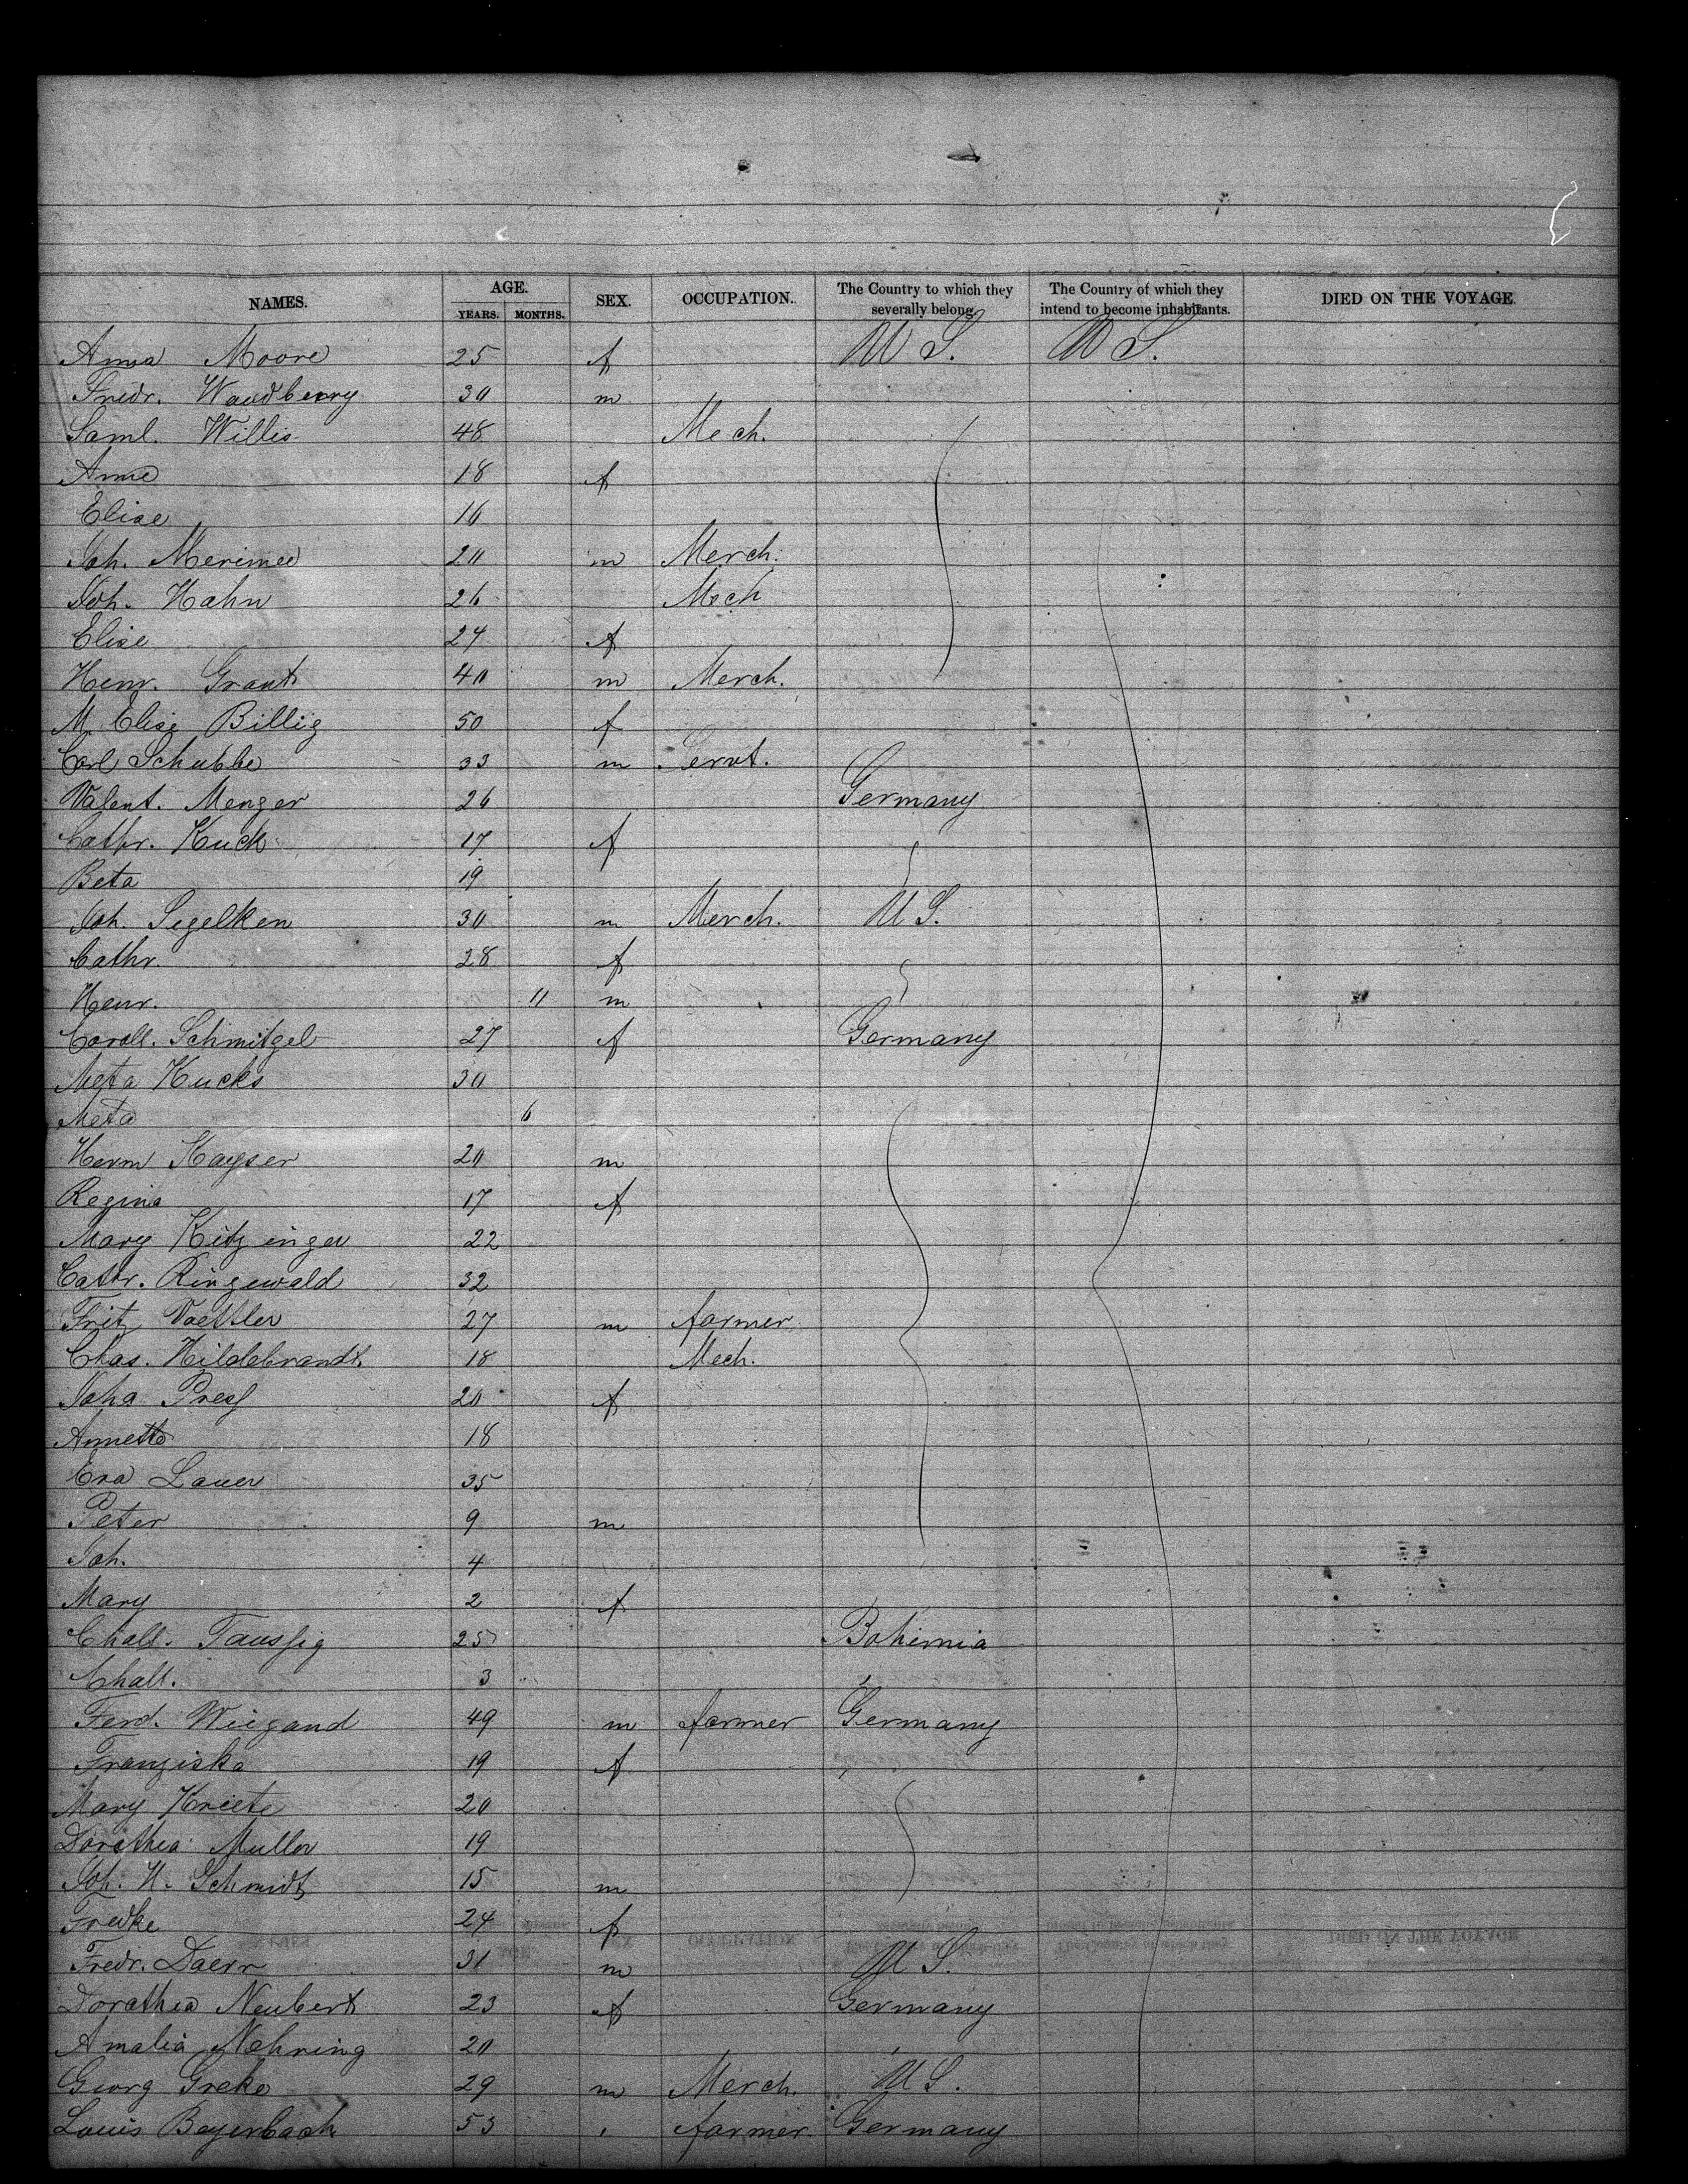 NAMES. AGE. SEX. OCCUPATION. The Country to which they severally belong. The Country of which they intend to become inhabitants. DIED ON THE VOYAGE.
YEARS. MONTHS.
Anna Moore 25 f U S. U S.
Fridr. Woodberry 30 m
Saml. Willis 48 Mech.
Anne 18 f
Elise 16
Joh. Merimee 20 m Merch.
Joh. Hahn 26 Mech
Elise 24 f
Henr. Grant 40 m Merch.
M. Elise Billig 50 f
Carl Schubbe 33 m Servt.
Valent. Menger 26 Germany
Cathr. Kuck 17 f
Beta 19
Joh. Segelken 30 m Merch. U S.
Cathr. 28 f
Henr. 11 m
Caroll. Schmitzel 27 f Germany
Meta Hucks 30
Meta 6
Herm Kayser 20 m
Regina 17 f
Mary Kitzinger 22
Cathr. Ringewald 32
Fritz Voettler 27 m farmer
Chas. Hildebrandt. 18 Mech.
Joha 20 f
Annette 18
Eva Lauer 35
Peter 9 m
Joh. 4
Mary 2 f
Chall. Taussig 25 Bohimia
Chall. 3
Ferd. Wiegand 49 m farmer Germany
Franziska 19 f
Mary Kriete 20
Dorathea Muller 19
Joh. H. Schmidt 15 m
Fredke 24 f
Fredr. Doerr 31 m U S.
Dorathea Neubert 23 f Germany
Amalia Nehring 20
Georg Greke 29 m Merch. U S.
Louis Beyerbach 53 farmer. Germany